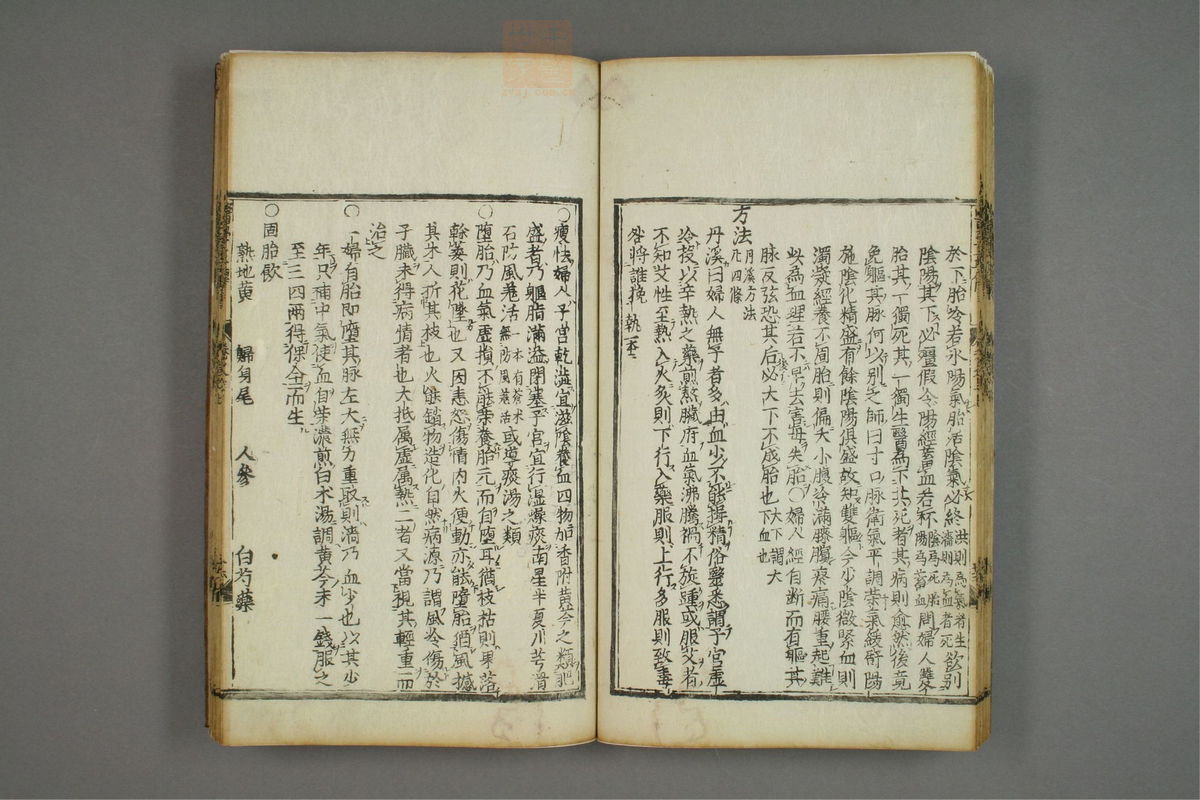 於下胎冷若水陽氣胎活陰氣必終洪則為氣者生濇則為血者死欲别
陰陽其下必彊假令陽經蓄血若杯陰為死胎陽為蓄血問婦人雙
胎其一獨死其一獨生醫為下其死者其病則愈然後竟
免軀其脉何以别之師曰寸口脉衛氣平調榮氣緩舒陽
施陰化精盛有餘陰陽俱盛故知雙軀今少陰微緊血則
濁凝經養不周胎則偏夭小腹冷滿膝臏疼痛腰重起難
此為血理若不早去害母失胎〇婦人經自斷而有軀其
脉反弦恐其后必大下不成胎也大下謂大下血也
方法丹溪方法凡四條
丹溪曰婦人無子者多由血少不能攝精俗醫悉謂子宮虛
冷投以辛熱之藥煎熬臟府血氣沸騰禍不旋踵或服艾者
不知艾性至熱入火灸則下行入藥服則上行多服則致毒
咎將誰挽
〇瘦怯婦人子宮乾澁宜滋陰養血四物加香附黄芩之類肥
盛者乃軀脂滿溢閉塞子宮宜行湿燥痰南星半夏川芎滑
石防風羌活一本有蒼术無防風羌活或導痰湯之類
〇墮胎乃血氣虛損不能榮養胎元而自墮耳猶枝枯則果落
藤萎則花墜也又因恚怒傷情内火便動亦能墮胎猶風撼
其木人折其枝也火能銷物造化自然病源乃謂風冷傷於
子臟未得病情者也大抵属虛属熱二者又當視其輕重而
治之
〇一婦有胎即墮其脉左大無力重取則濇乃血少也以其少
年只補中氣使血自榮濃煎白术湯調黄芩末一錢服之
至三四兩得保全而生
〇固胎飲
熟地黄 歸身尾 人參 白芍藥